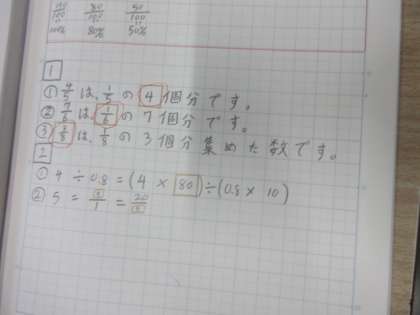 80/100 50/100
100% 80% 50%
1
① 4/5は、1/5の4個分です。
② 7/6は、1/6の7個分です。
③ 3/8は、1/8の3個分集めた数です。
2
① 4÷0.8=(4×80)÷(0.8×10)
② 5=5/1=20/